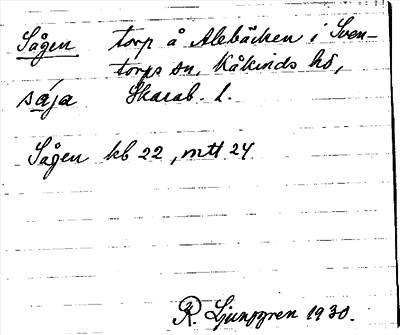 Sågen torp å Alebäcken i Sven-
torps sn, Kåkinds hd,
såja Skarab. l.
Sågen kb 22, mtt 24
R. Ljunggren 1930.